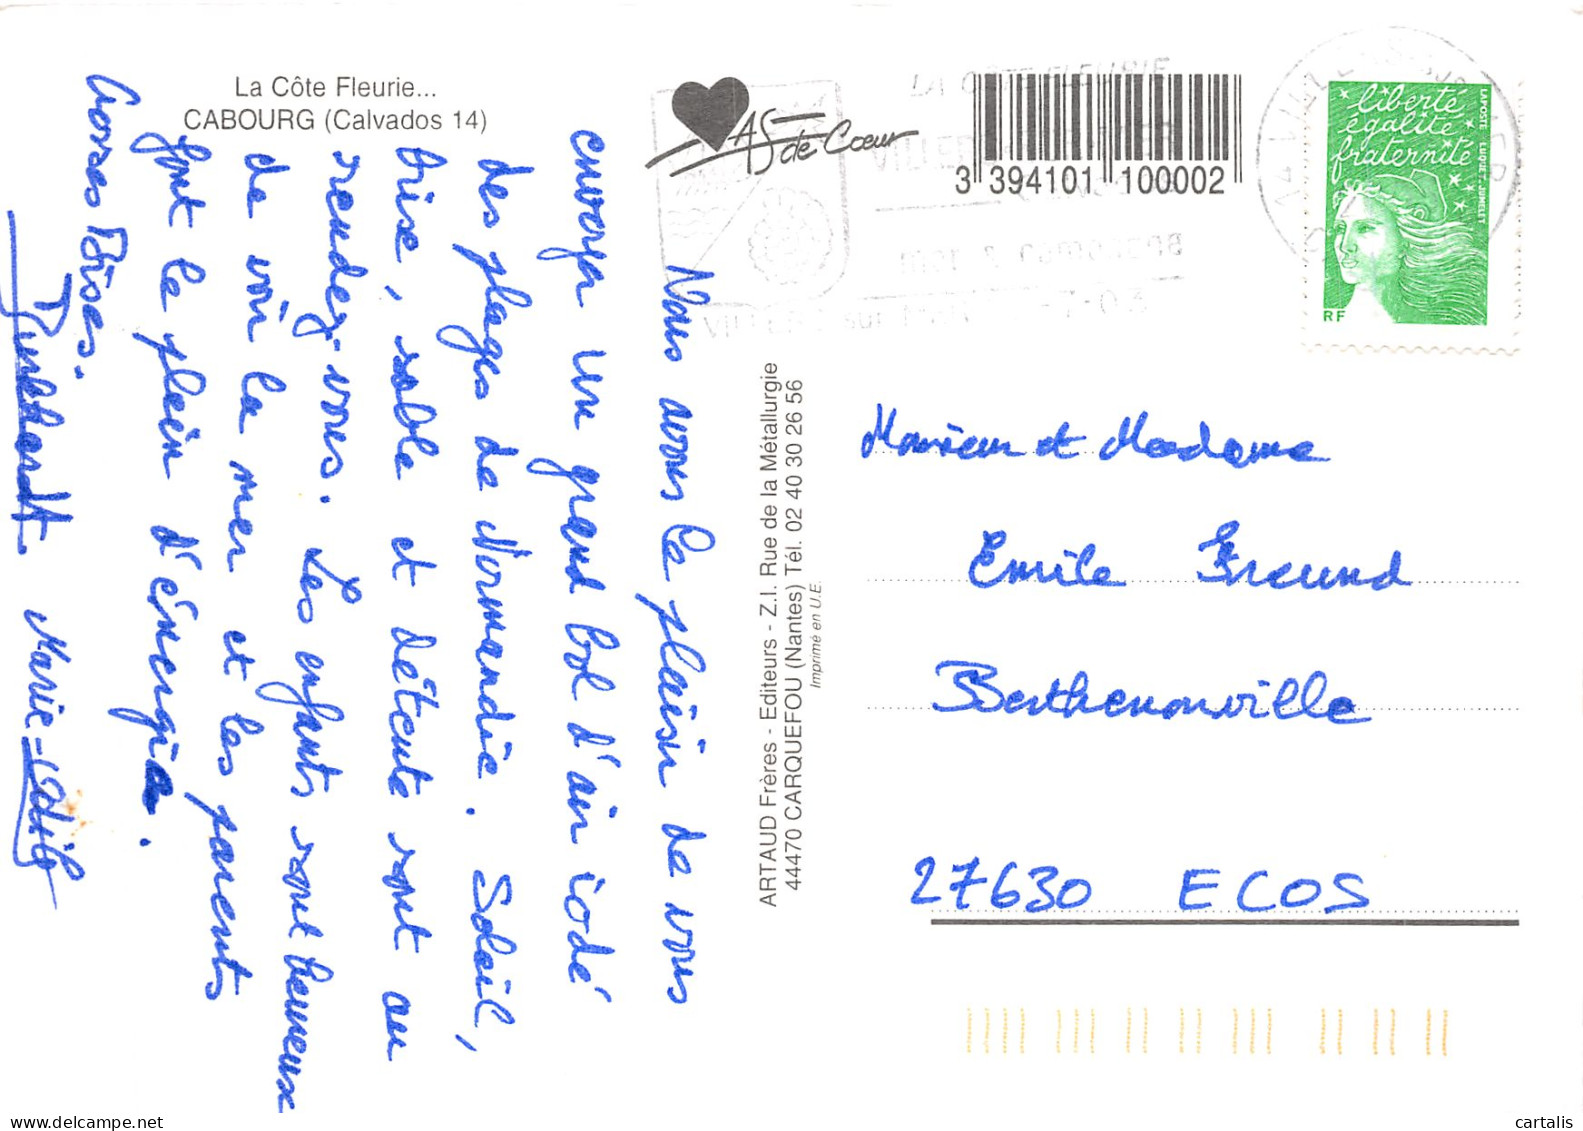 La Côte Fleurie...
CABOURG (Calvados 14)
As de Cœur
3 394101 100002
LA CÔTE FLEURIE
liberté
égalité
fraternité
LA POSTE
LUQUET-JUMELET
RF
Nous avons le plaisir de vous
envoyer un grand bol d'air iodé
des plages de Normandie. Soleil,
brise, sable et détente sont au
rendez-vous. Les enfants sont heureux
de voir la mer et les parents
font le plein d'énergie.
Grosses Bises.
Marie-Odile
ARTAUD Frères - Editeurs - Z.I. Rue de la Métallurgie
44470 CARQUEFOU (Nantes) Tél. 02 40 30 26 56
Imprimé en U.E.
Monsieur et Madame
Emile Freund
Berthenonville
27630 ECOS
delcampe.net
cartalis